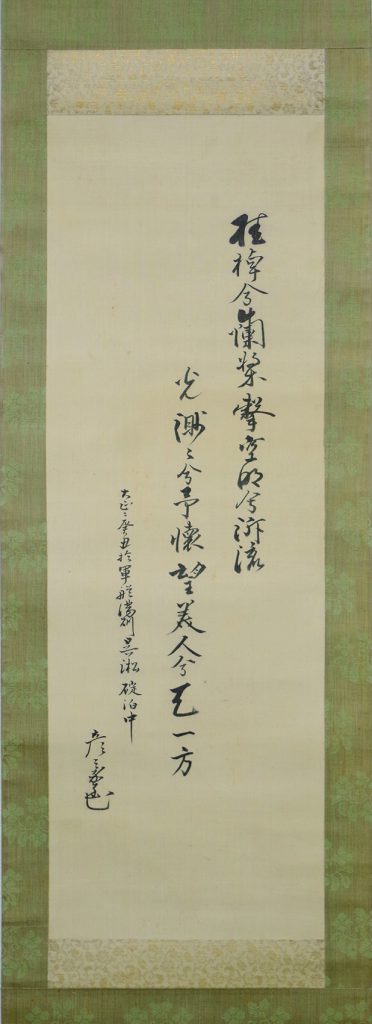 桂棹兮蘭槳擊空明兮泝流
光渺〻兮予懷望美人兮天一方
大正二癸丑於軍艦満洲呉淞碇泊中